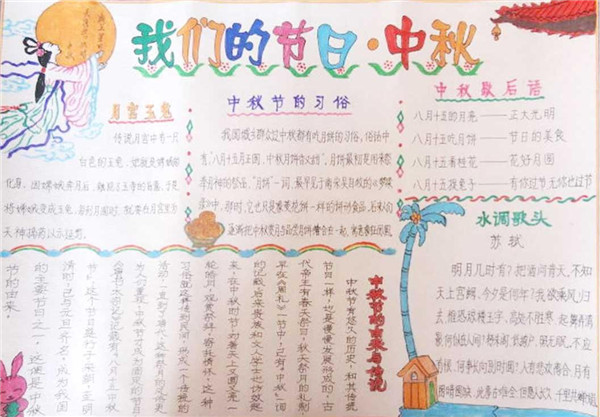 我们的节日·中秋
月宫玉兔
传说月宫中有一只
白色的玉兔,她就是嫦娥的
化身。因嫦娥奔月后,
将嫦娥变成玉兔,每到月圆时,就要在月宫里为
天神捣药以示惩罚。
中秋节的习俗
我国城乡群众过中秋都有吃月饼的习俗,俗话中
有:"八月十五月正圆,中秋月饼香又甜"。月饼最初是用来祭
奉月神的祭品,"月饼"一词,最早见于南宋吴自牧的《梦粱
录》中,那时,它也只是象菱花饼一样的饼形食品。后来人们
逐渐把中秋赏月与品尝月饼结合在一起,
中秋歇后语
八月十五的月亮——正大光明
八月十五吃月饼——节日的美食
八月十五看桂花——花好月圆
八月十五捉兔子——有你过节无你也过节
水调歌头
苏轼
明月几时有?把酒问青天。不知
天上宫阙,今夕是何年?我欲乘风归
去,惟恐琼楼玉宇,高处不胜寒。起舞弄清
影,何似在人间!转朱阁,低绮户,照无眠。不应
有恨,何事长向别时圆?人有悲欢离合,月有
阴晴圆缺,此事古难全。但愿人长久,千里共婵娟。
中秋节的由来与传说
中秋节有悠久的历史,和其他传统
节日一样,也是慢慢发展形成的,古
代帝王有春天祭日,秋天祭月的礼制,
早在《周礼》一书中,已有"中秋"一词
的记载。后来贵族和文人学士也仿效起
来,在中秋时节,对着天上又圆又亮一
轮皓月,观赏祭拜,寄托情怀,这种
习俗就这样传到民间,形成一个传统的
活动,一直到了唐代,这种祭月的风俗更
为人们重视,中秋节才成为固定的节日,
节",这个节日盛行于宋朝,至明
清时,已与元旦齐名,成为我国
的主要节日之一。这便是中秋
节的由来。